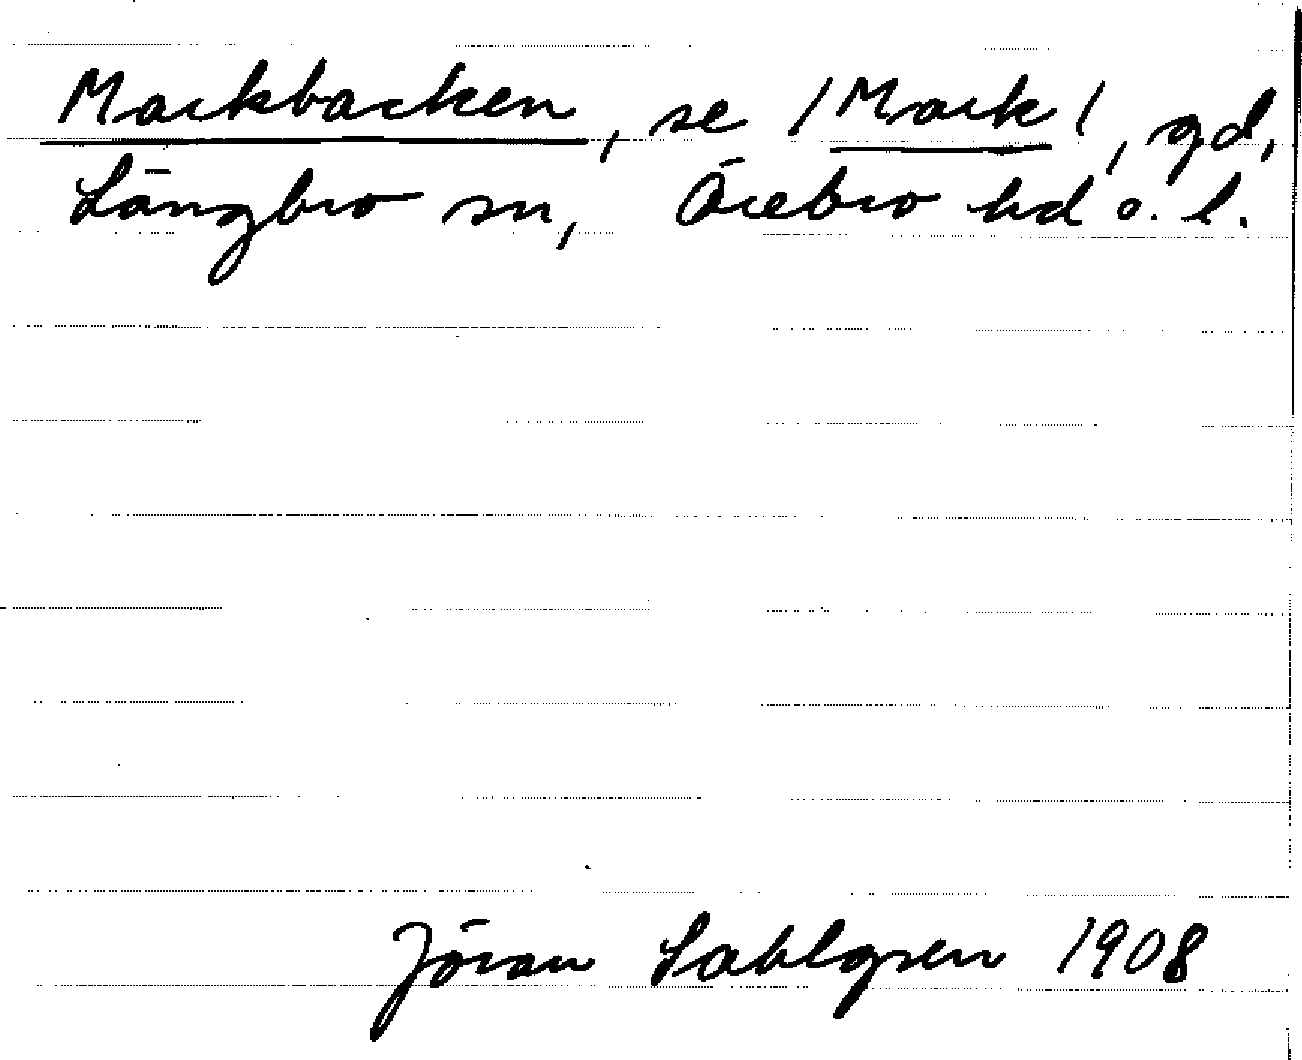 Markbacken, se /Mark/, gd,
Längbro sn, Örebro hd o. l.
Jöran Sahlgren 1908